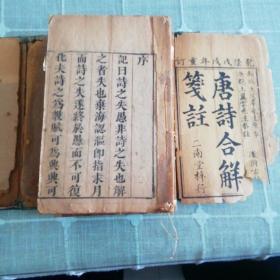 乾隆戊戌年重訂
唐詩合解
箋註
二南堂梓行
序
記曰詩之失愚非詩之失也解
之者失也棄海認漚即指求月
而詩之失遂終於愚而不可復
化夫詩之為賦可為興興可